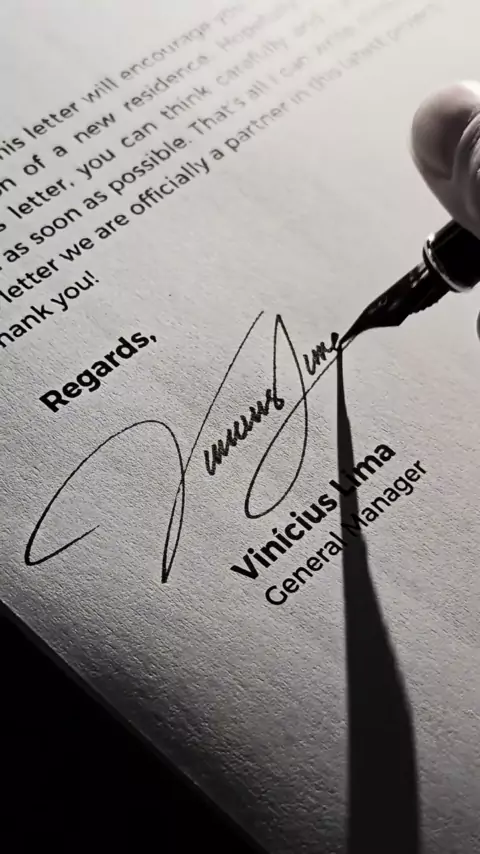 his letter will encourage you
on of a new residence. Hopefully
s letter, you can think carefully and
as soon as possible. That's all I can write
letter we are officially a partner in this latest project.
hank you!
Regards,
Vinícius Lima
Vinícius Lima
General Manager